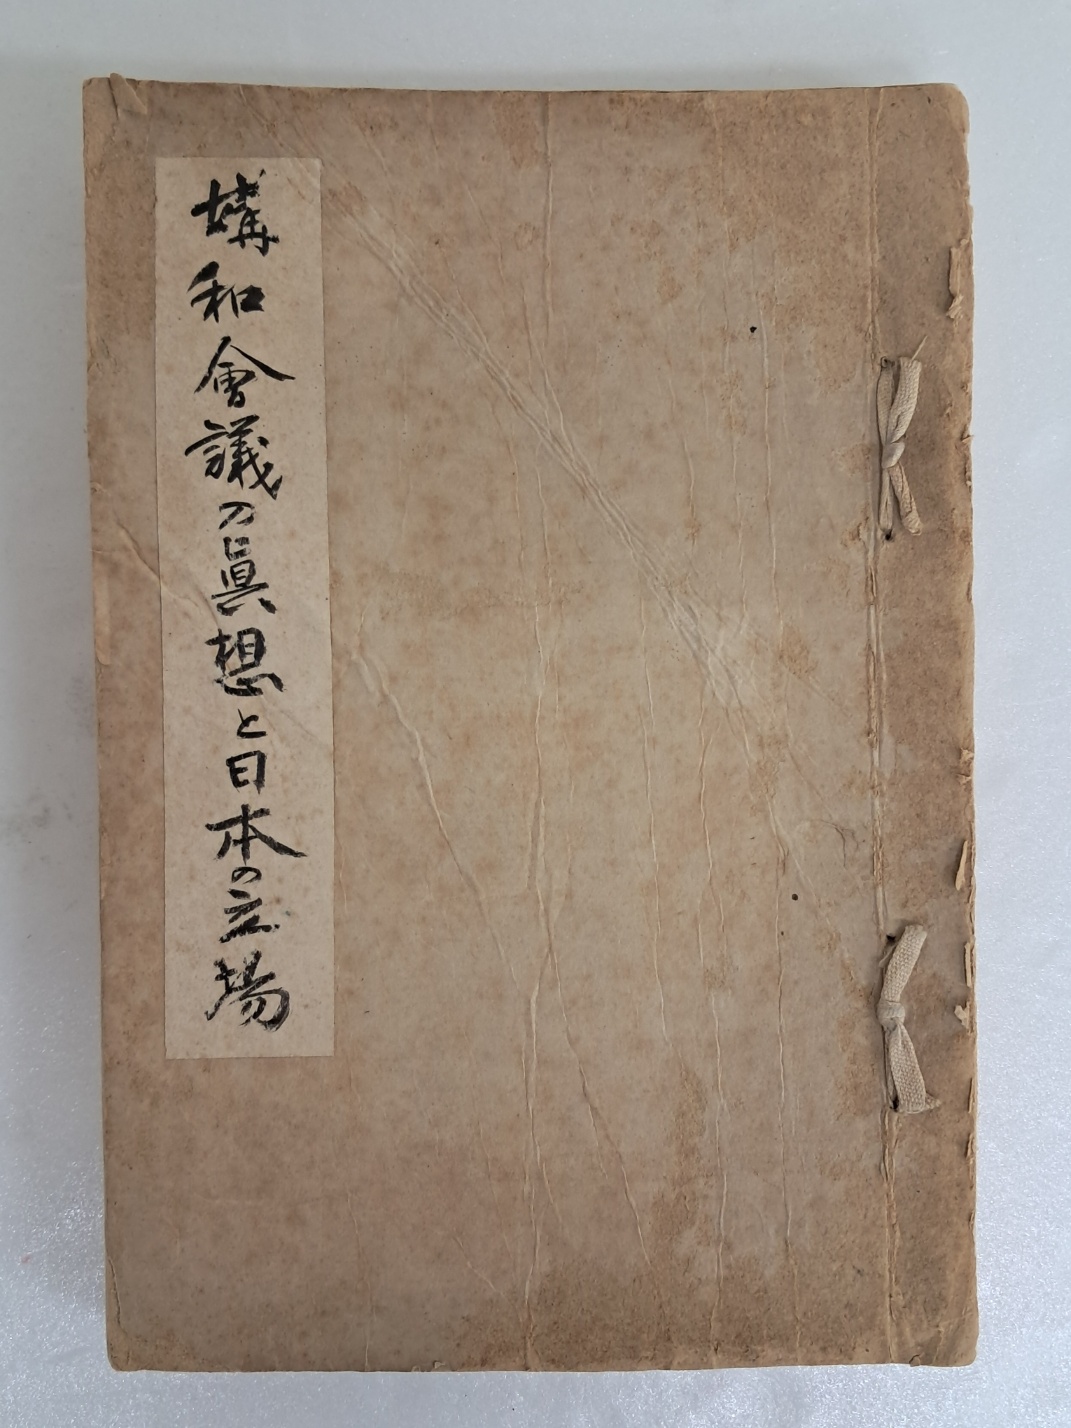 媾和會議の眞想と日本の立場